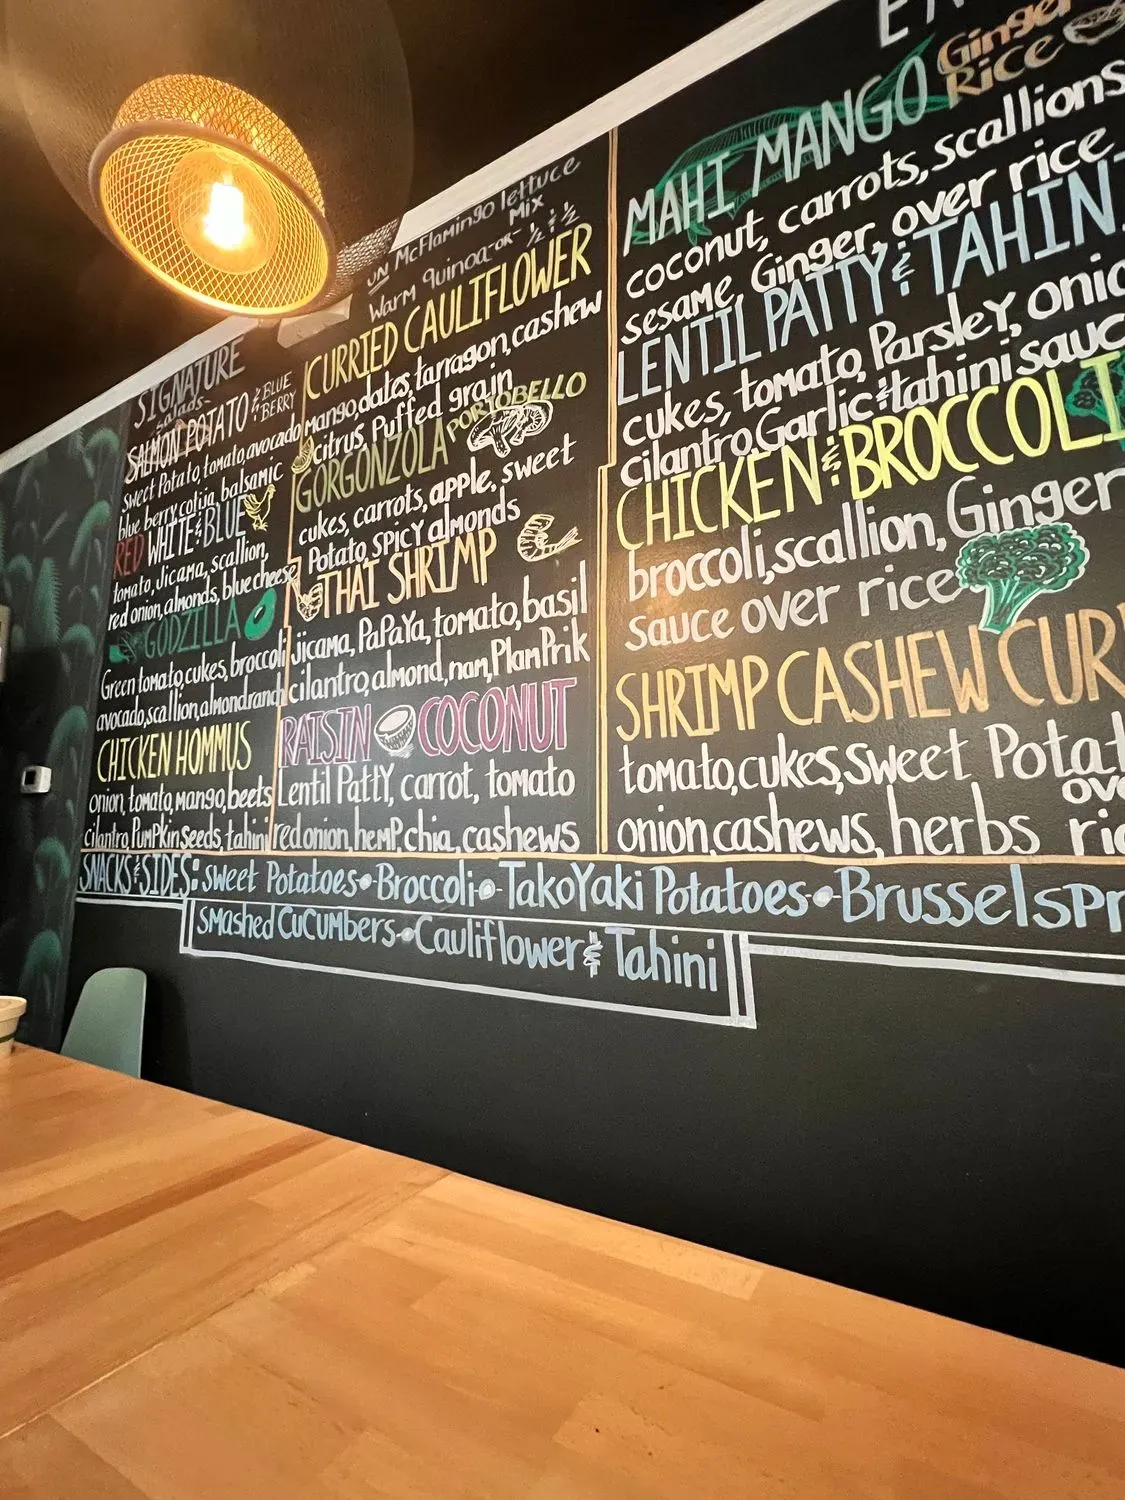 SIGNATURE
-salads-
ON McFlamingo lettuce
Warm quinoa -or- ½ & ½
Mix
SALMON POTATO & BLUE
BERRY
sweet Potato, tomato, avocado
blue berry, cotija, balsamic
RED WHITE & BLUE
tomato, Jicama, scallion,
red onion, almonds, blue cheese
GODZILLA
Green tomato, cukes, broccoli
avocado, scallion, almond ranch
CHICKEN HOMMUS
onion, tomato, mango, beets
cilantro, PumPkin Seeds, tahini
CURRIED CAULIFLOWER
mango, dates, tarragon, cashew
citrus, Puffed grain
GORGONZOLA PORTOBELLO
cukes, carrots, apple, sweet
Potato, SPicY almonds
THAI SHRIMP
Jicama, PaPaYa, tomato, basil
cilantro, almond, nam, PlamPrik
RAISIN COCONUT
Lentil PattY, carrot, tomato
red onion, hemP, chia, cashews
MAHI MANGO Ginger
Rice
coconut, carrots, scallions
sesame, Ginger, over rice
LENTIL PATTY & TAHIN
cukes, tomato, ParsleY, onio
cilantro, Garlic & tahini sauc
CHICKEN & BROCCOLI
broccoli, scallion, Ginger
sauce over rice
SHRIMP CASHEW CUR
tomato, cukes, sweet Potat
onion, cashews, herbs
ove
ric
SNACKS & SIDES: sweet Potatoes • Broccoli • TakoYaki Potatoes • Brussel sPr
smashed CuCUmbers • Cauliflower & Tahini